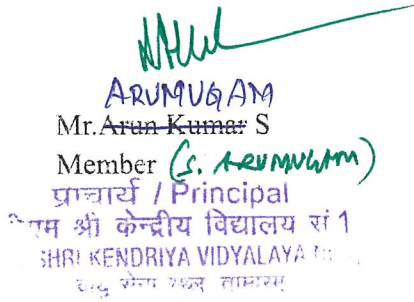 ARUMUGAM
Mr.Arun Kumar S
Member (S. ARUMUGAM)
प्राचार्य / Principal
श्री केन्द्रीय विद्यालय सं 1
SHRI KENDRIYA VIDYALAYA
वायु सेना स्थल ताम्बरम